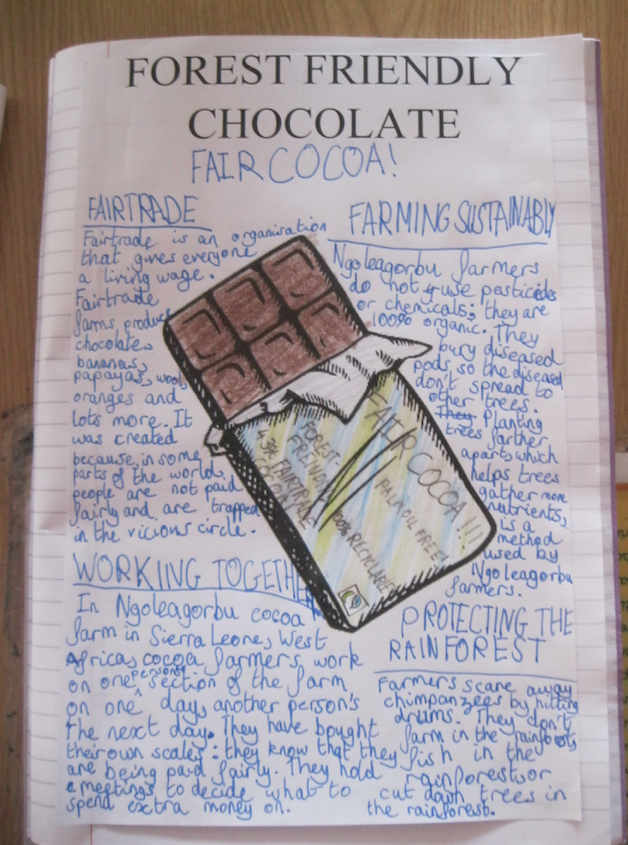 FOREST FRIENDLY
CHOCOLATE
FAIR COCOA!
FAIRTRADE
Fairtrade is an organisation
that gives everyone
a living wage.
Fairtrade
farms produce
chocolate,
bananas,
papayas, wool
oranges and
lots more. It
was created
because, in some
parts of the world,
people are not paid
fairly and are trapped
in the vicious circle.
FARMING SUSTAINABLY
Ngoleagorbu farmers
do not use pesticides
or chemicals; they are
100% organic. They
bury diseased
pods, so the diseased
don't spread to
other trees.
They Planting
trees farther
apart, which
helps trees
gather more
nutrients,
is a
method
used by
Ngoleagorbu
farmers.
FAIR COCOA!!!
PALM OIL FREE!
FOREST
FRIENDLY
43% FAIRTRADE
COCOA
100% RECYCLABLE
WORKING TOGETHER
In Ngoleagorbu cocoa
farm in Sierra Leone, West
Africa, cocoa farmers work
on one person's section of the farm
on one day, another person's
the next day. They have bought
their own scales: they know that they
are being paid fairly. They hold
meetings to decide what to
spend extra money on.
PROTECTING THE
RAINFOREST
Farmers scare away
chimpanzees by hitting
drums. They don't
farm in the rainforests
fish in the
rainforests or
cut down trees in
the rainforest.